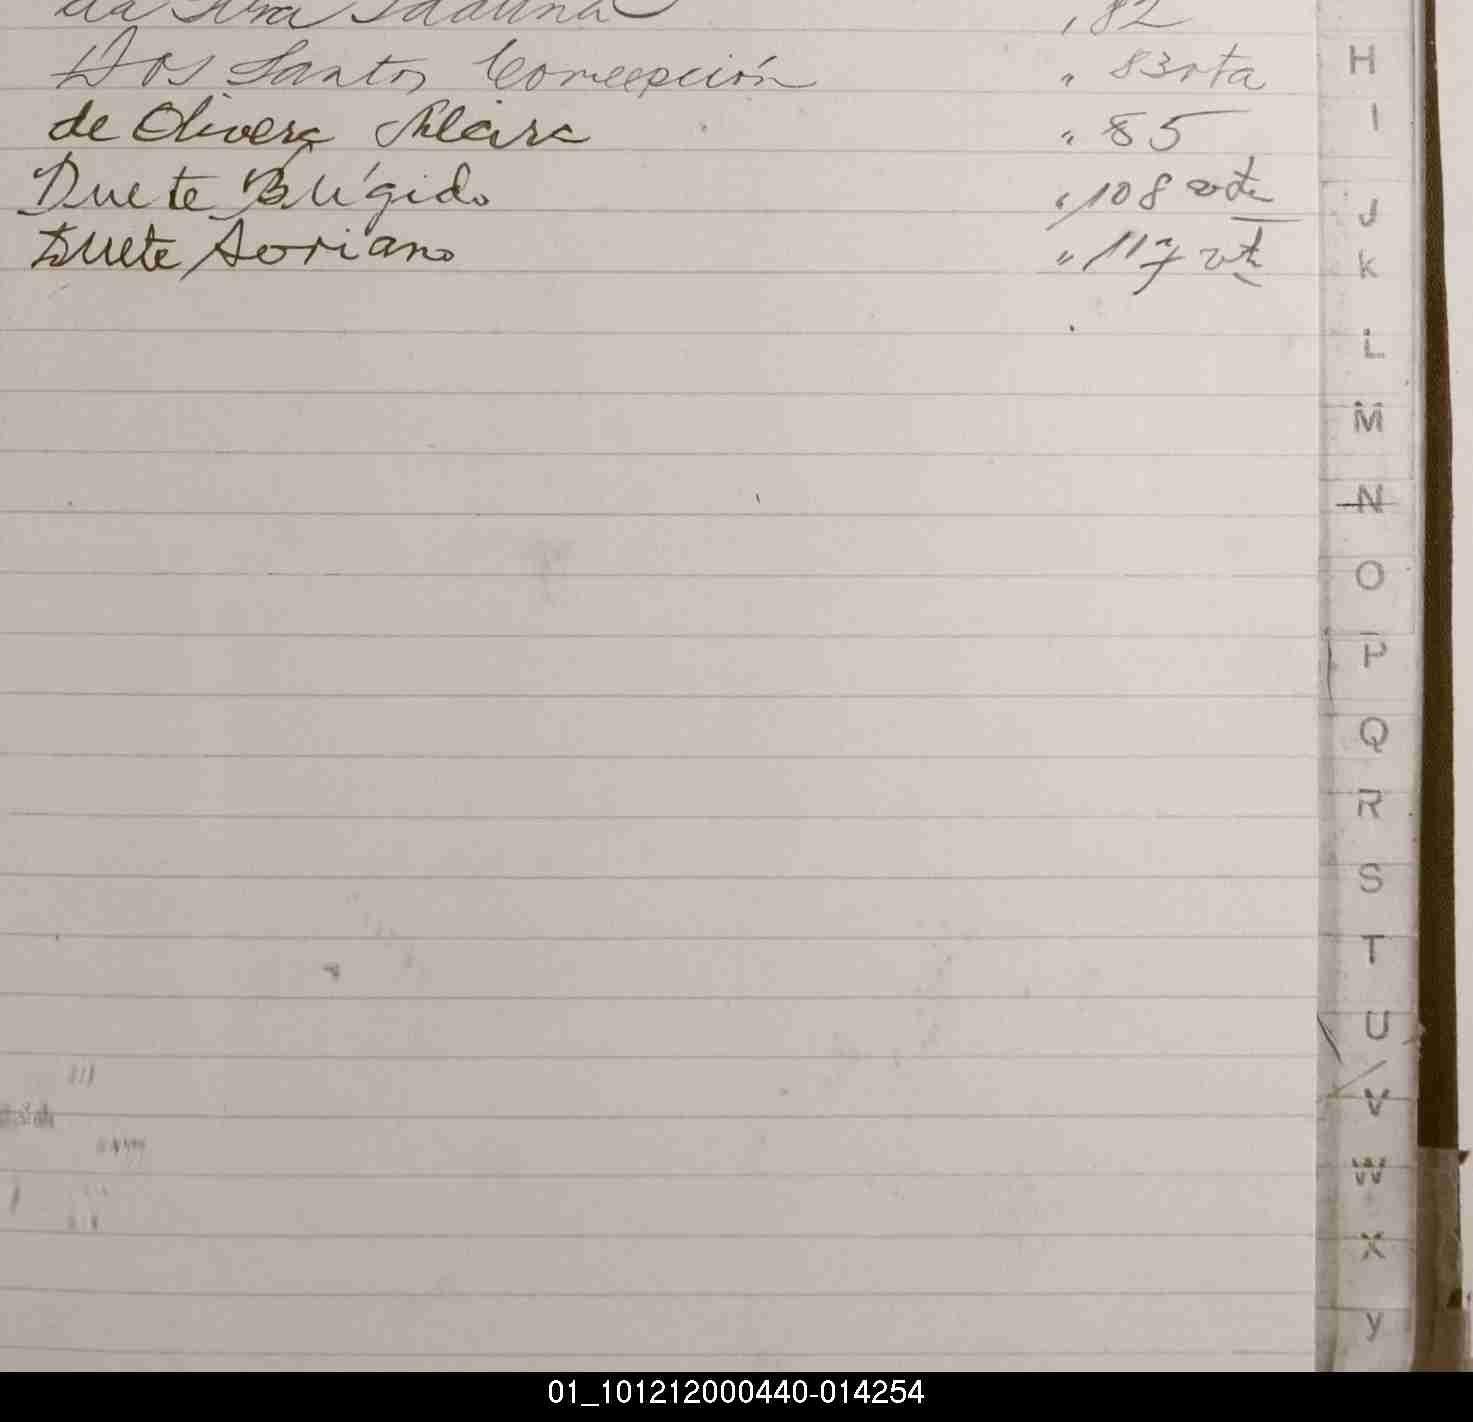 da Silva ,, 82
Dos Santos Concepción " 83 vta
H
de Olivera " 85
I
Duete Brígido " 108 vta
J
Duete Soriano " 117 vta
K
L
M
N
O
P
Q
R
S
T
U
V
W
X
y
01_101212000440-014254